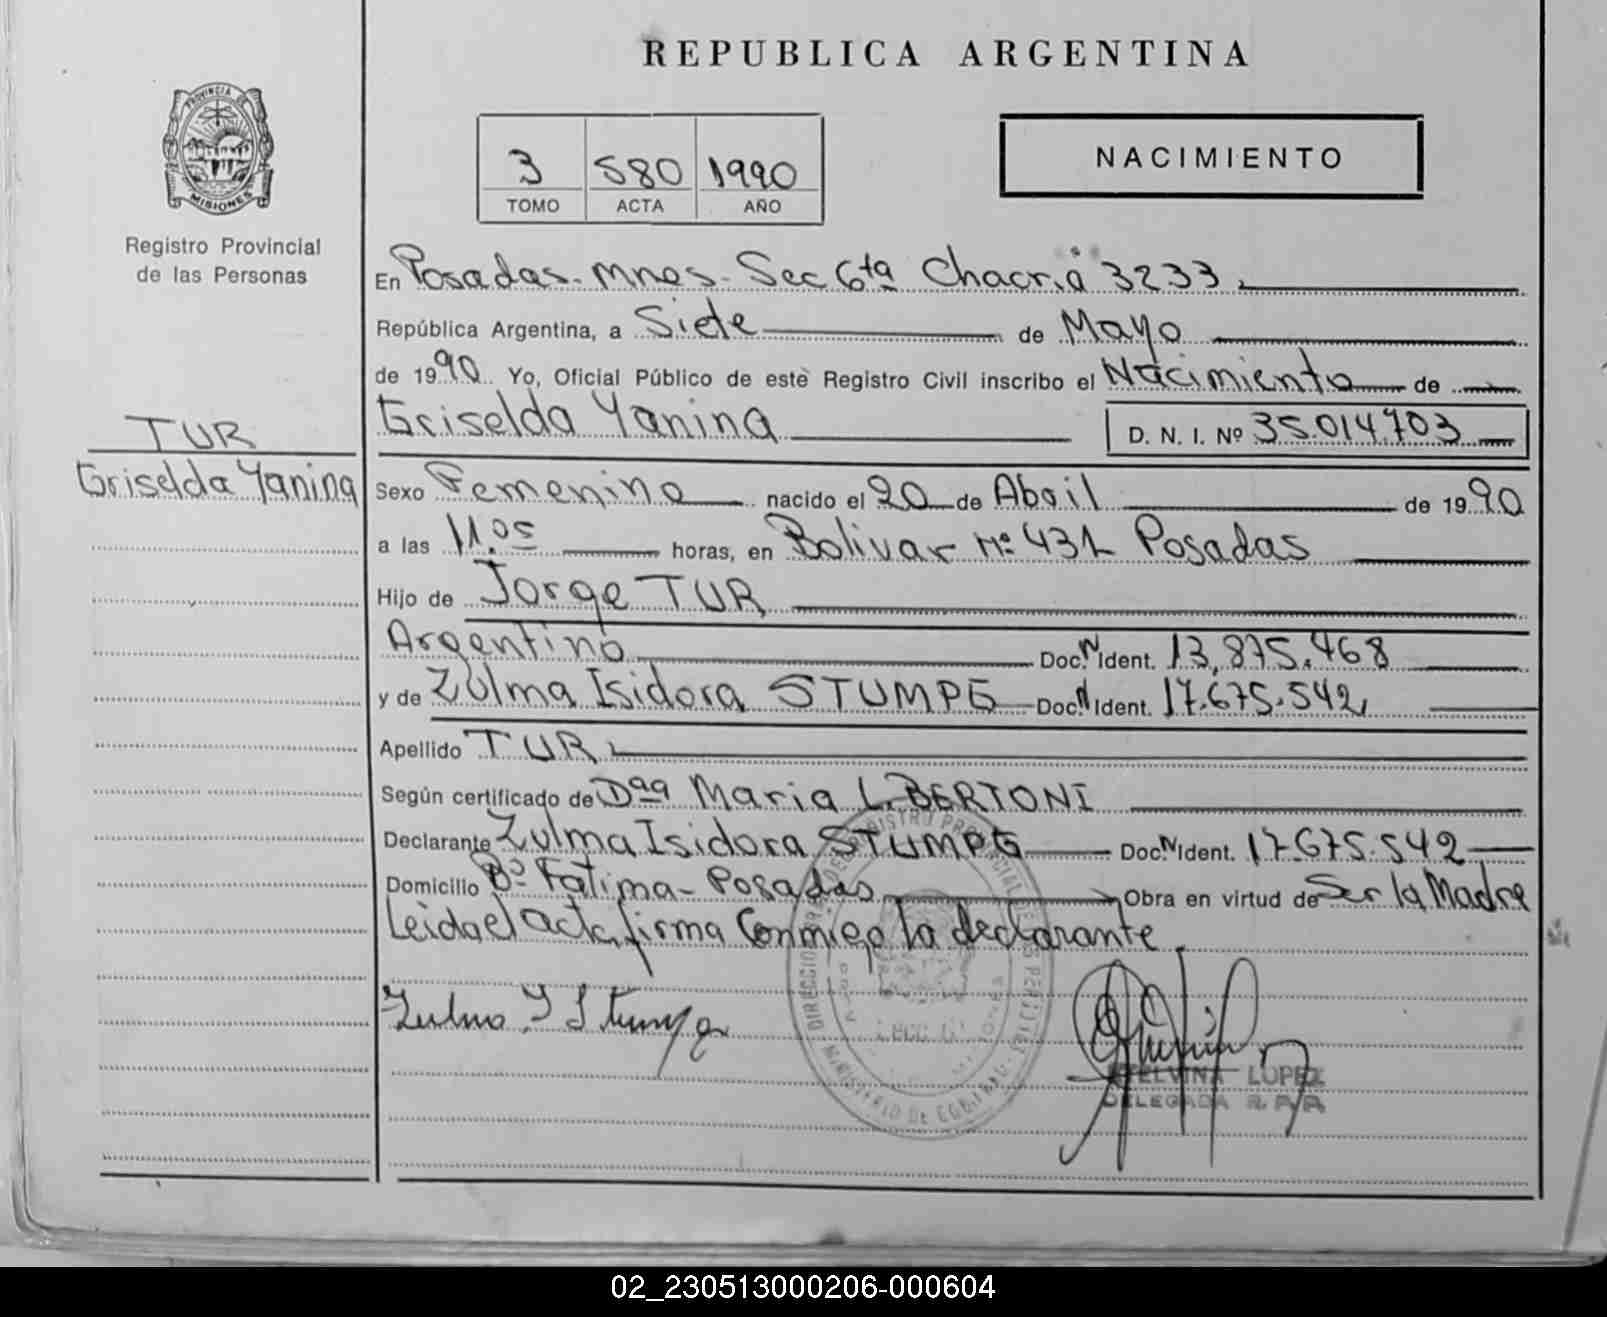 REPUBLICA ARGENTINA
PROVINCIA DE
MISIONES
Registro Provincial
de las Personas
3 580 1990
TOMO ACTA AÑO
NACIMIENTO
En Posadas-Mnes-Sec 6ta Chacra 3233
República Argentina, a Siete de Mayo
de 1990 Yo, Oficial Público de este Registro Civil inscribo el Nacimiento de
Griselda Yanina D. N. I. Nº 35014703
TUR
Griselda Yanina
Sexo Femenino nacido el 20 de Abril de 1990
a las 11.05 horas, en Bolivar Nº 431 Posadas
Hijo de Jorge TUR
Argentino Doc. N Ident. 13.875.468
y de Zulma Isidora STUMPG Doc. N Ident. 17.675.542
Apellido TUR
Según certificado de Dña Maria L. BERTONI
Declarante Zulma Isidora STUMPG Doc. N Ident. 17.675.542
Domicilio Bº Fatima - Posadas Obra en virtud de Ser la Madre
Leida el acta, firma Conmigo la declarante
Zulma I Stumpg
ETELVINA LOPEZ
DELEGADA R. P. P.
02_230513000206-000604